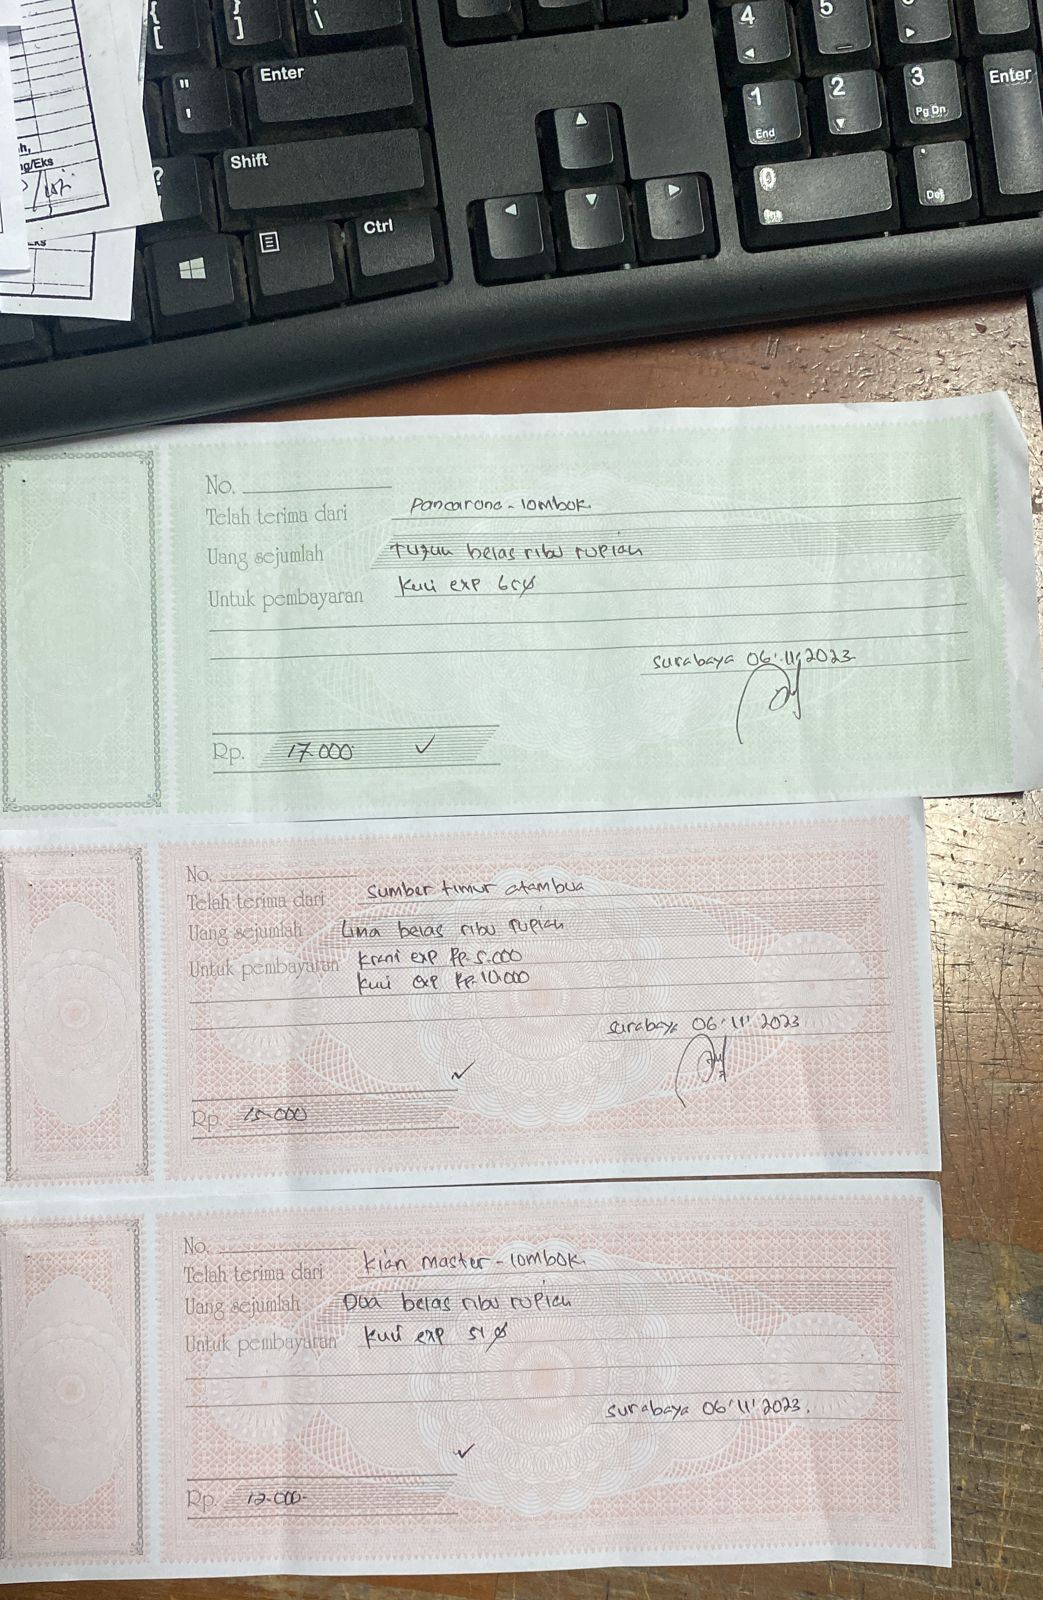 {
[
}
]
|
\
"
'
Enter
?
Shift
Ctrl
4
5
1
End
2
3
Pg Dn
Enter
0
Ins
.
Del
h,
g/Eks
No.
Telah terima dari Pancarona - lombok.
Uang sejumlah Tujuh belas ribu rupiah
Untuk pembayaran Kuli exp
Surabaya 06'11'2023
Rp. 17.000
No.
Telah terima dari Sumber timur atambua
Uang sejumlah Lima belas ribu rupiah
Untuk pembayaran Krani exp Rp. 5.000
Kuli exp Rp. 10.000
Surabaya 06'11'2023
Rp. 15.000
No.
Telah terima dari Kian master - lombok.
Uang sejumlah Dua belas ribu rupiah
Untuk pembayaran Kuli exp
Surabaya 06'11'2023.
Rp. 12.000-